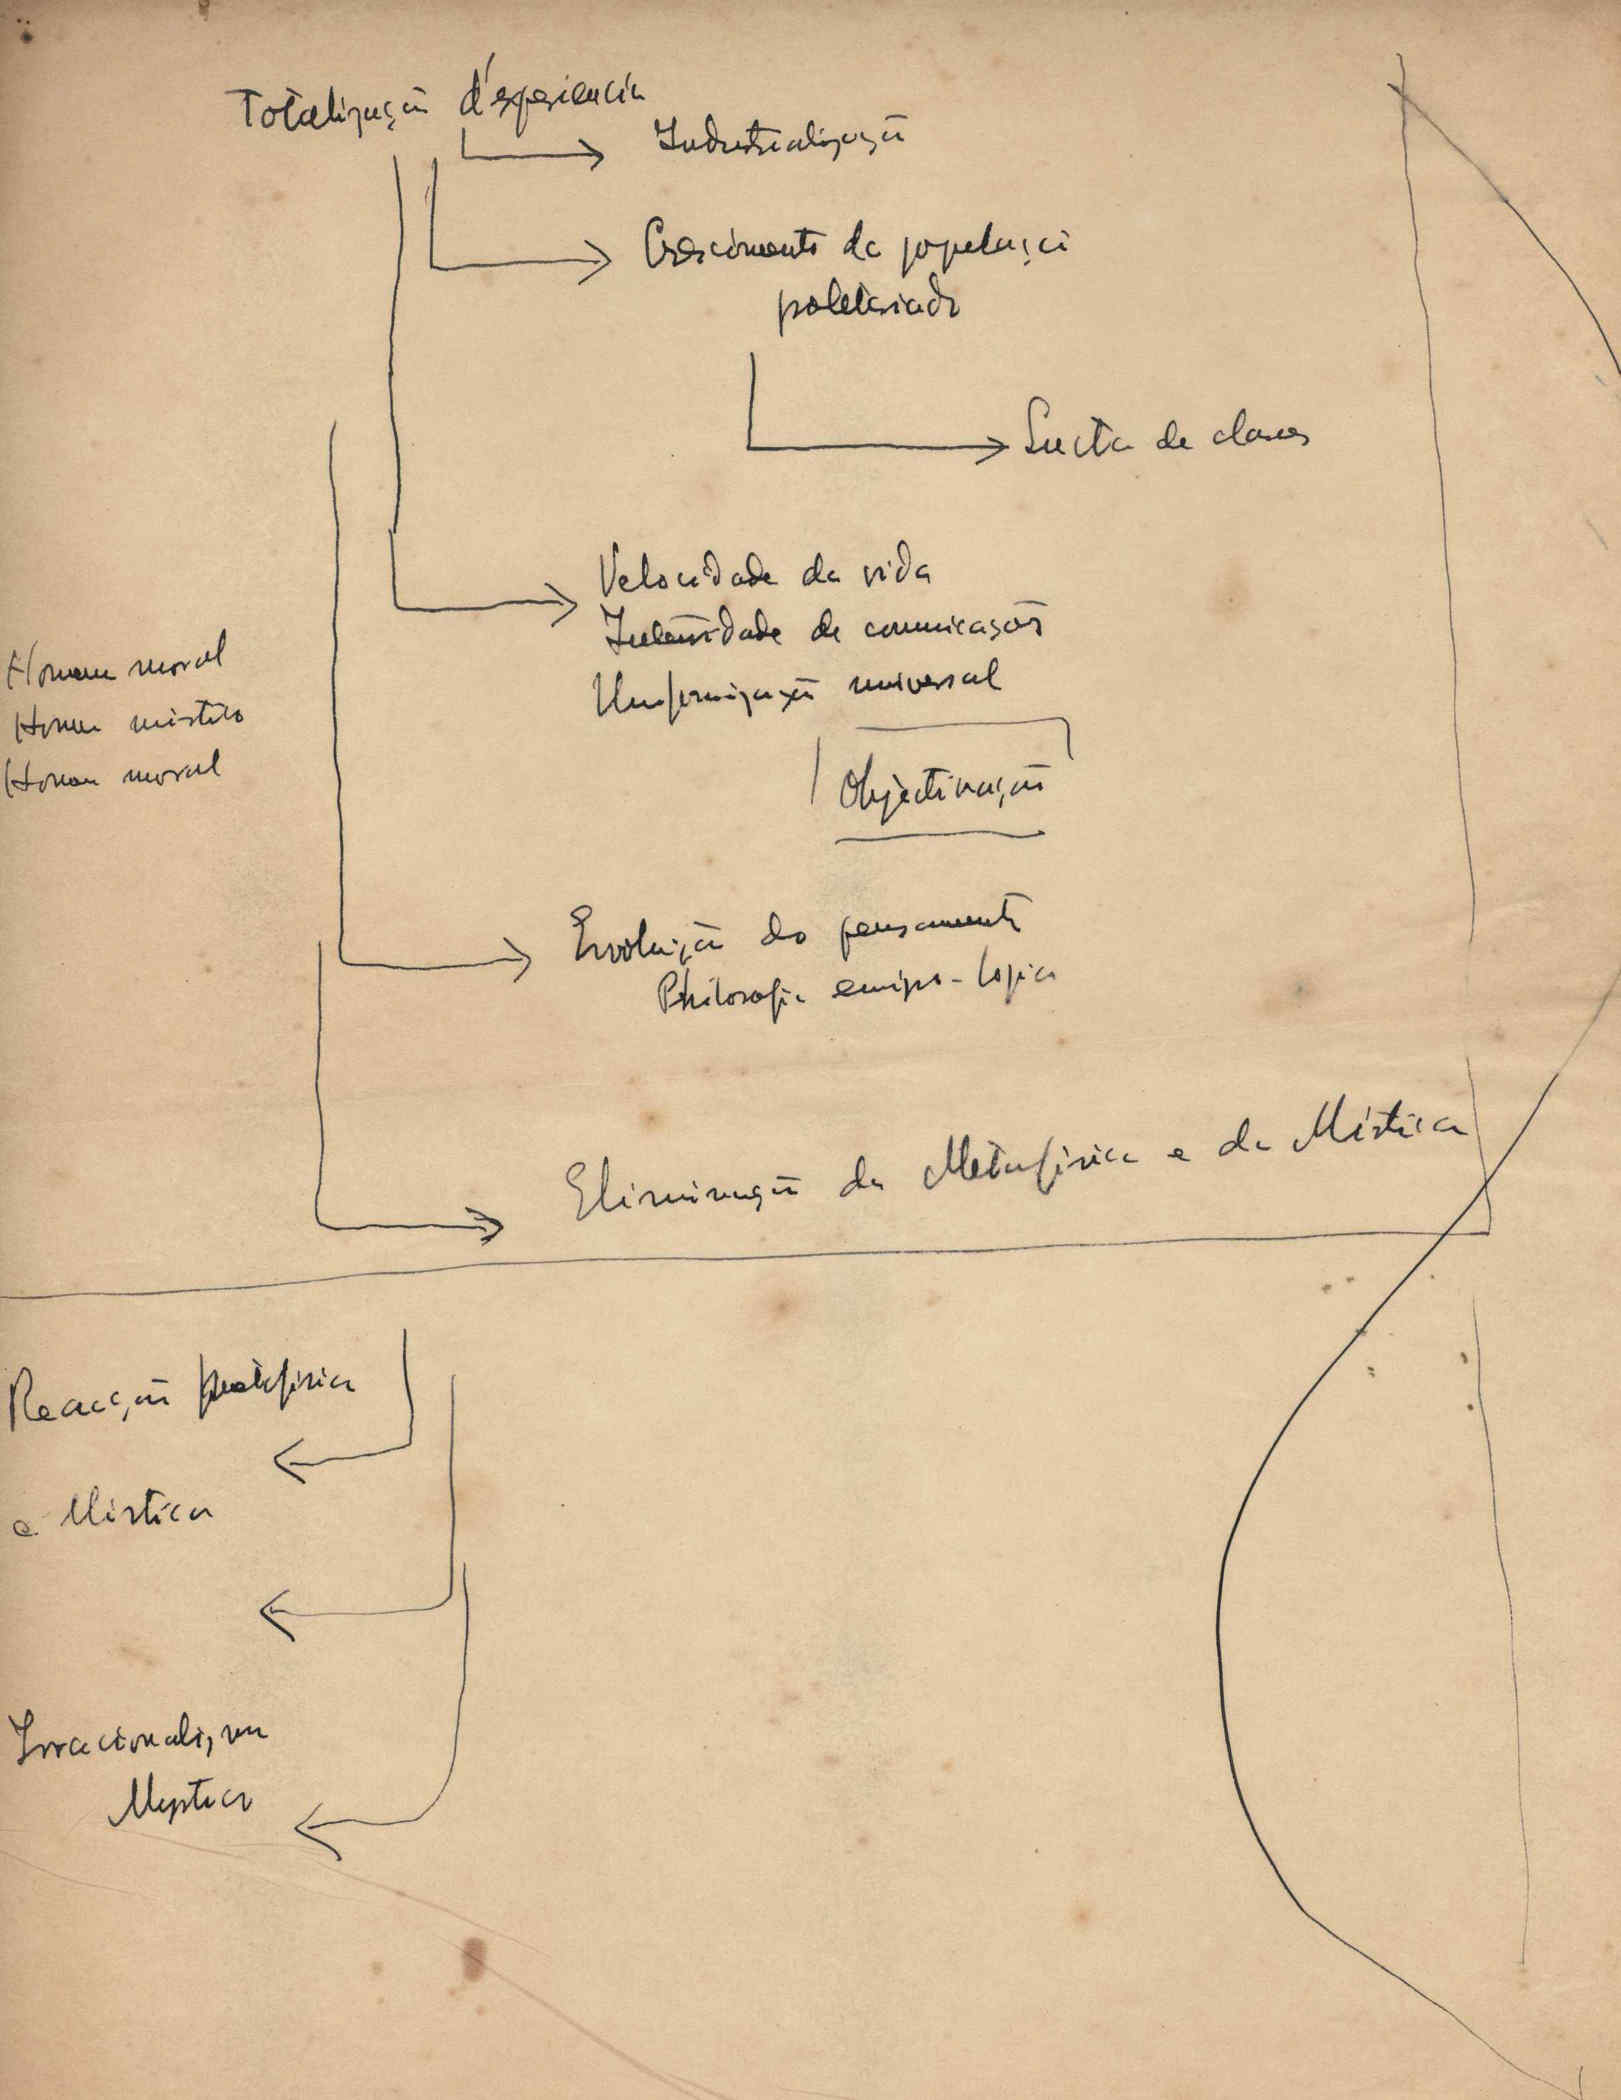 Totalização d'experiencia
Industrialização
Crescimento da população
proletariado
Lucta de classes
Velocidade da vida
Intensidade de comunicações
Uniformização universal
Objectivação
Homem moral
Homem mistico
Homem moral
Evolução do pensamento
Philosofia empiro-logica
Eliminação da Metafisica e da Mistica
Reacção metafisica
e Mistica
Irracionalismo
Mystica